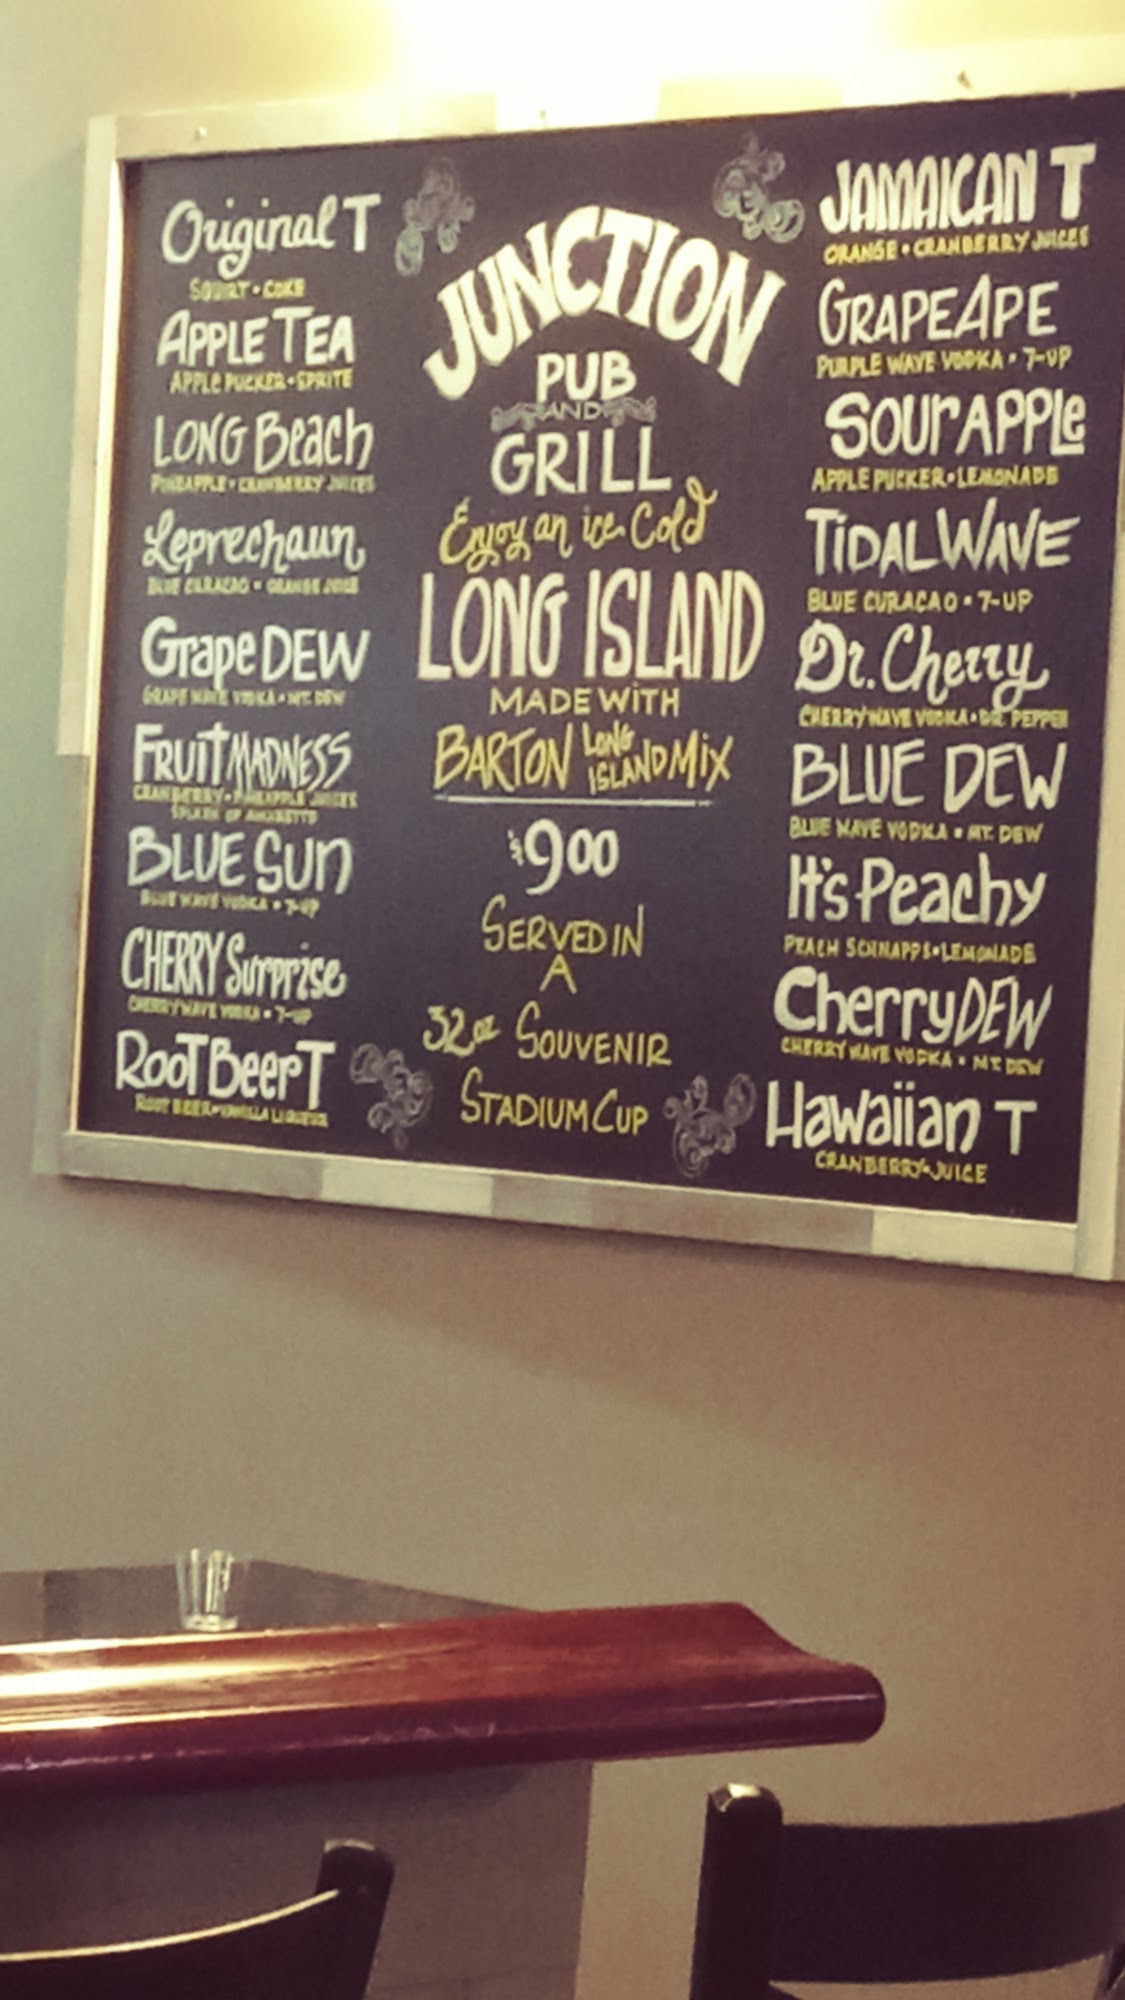 Original T
SQUIRT • COKE
APPLE TEA
APPLE PUCKER • SPRITE
LONG Beach
PINEAPPLE • CRANBERRY JUICES
Leprechaun
BLUE CURACAO • ORANGE JUICE
Grape DEW
GRAPE WAVE VODKA • MT. DEW
FRUIT MADNESS
CRANBERRY • PINEAPPLE JUICES
SPLASH OF AMARETTO
BLUE SUN
BLUE WAVE VODKA • 7-UP
CHERRY Surprise
CHERRY WAVE VODKA • 7-UP
ROOT BEER T
ROOT BEER • VANILLA LIQUEUR
JUNCTION
PUB
AND
GRILL
Enjoy an ice Cold
LONG ISLAND
MADE WITH
BARTON LONG ISLAND MIX
$9.00
SERVED IN
A
32 oz SOUVENIR
STADIUM CUP
JAMAICAN T
ORANGE • CRANBERRY JUICES
GRAPE APE
PURPLE WAVE VODKA • 7-UP
SOUR APPLE
APPLE PUCKER • LEMONADE
TIDAL WAVE
BLUE CURACAO • 7-UP
Dr. Cherry
CHERRY WAVE VODKA • DR. PEPPER
BLUE DEW
BLUE WAVE VODKA • MT. DEW
It's Peachy
PEACH SCHNAPPS • LEMONADE
Cherry DEW
CHERRY WAVE VODKA • MT. DEW
Hawaiian T
CRANBERRY JUICE